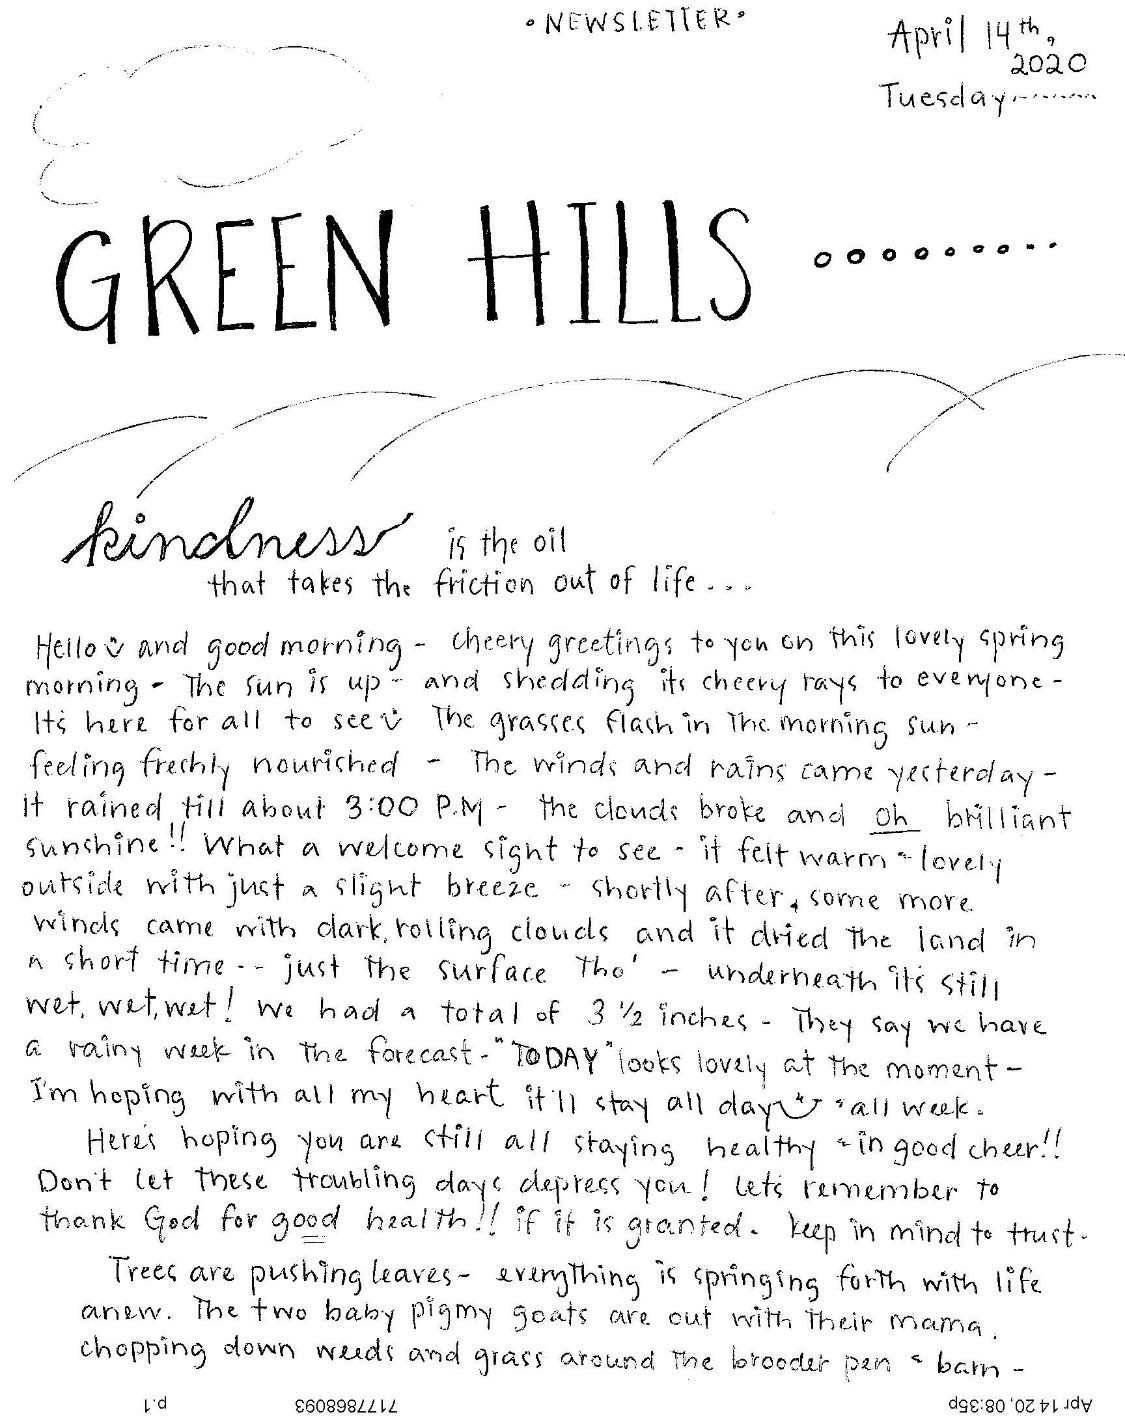 • NEWSLETTER •
April 14th,
2020
Tuesday
GREEN HILLS
kindness is the oil
that takes the friction out of life...
Hello and good morning - cheery greetings to you on this lovely spring
morning - The sun is up - and shedding its cheery rays to everyone -
It's here for all to see The grasses flash in The morning sun -
feeling freshly nourished - The winds and rains came yesterday -
it rained till about 3:00 P.M - the clouds broke and oh brilliant
sunshine!! What a welcome sight to see - it felt warm + lovely
outside with just a slight breeze - shortly after, some more
winds came with dark, rolling clouds and it dried The land in
a short time -- just The surface Tho' - underneath it's still
wet, wet, wet! We had a total of 3 1/2 inches - They say we have
a rainy week in The forecast - "TODAY" looks lovely at The moment -
I'm hoping with all my heart it'll stay all day + all week.
Here's hoping you are still all staying healthy + in good cheer!!
Don't let These troubling days depress you! Let's remember to
thank God for good health!! if it is granted. Keep in mind to trust.
Trees are pushing leaves - everything is springing forth with life
anew. The two baby pigmy goats are out with Their mama,
chopping down weeds and grass around The brooder pen + barn -
Apr 14 20, 08:35p 7177868093 p.1